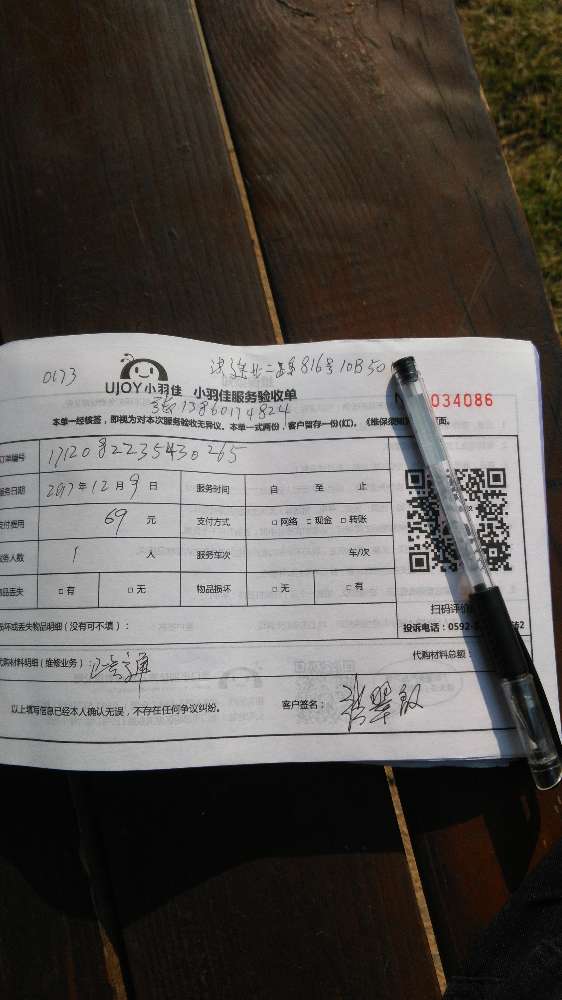 0173 816号10B50
UJOY小羽佳 小羽佳服务验收单 034086
张13860174824
本单一经核签，即视为对本次服务验收无异议。本单一式两份，客户留存一份(红)。《维保须 页。
订单编号 1712082235430265
服务日期 2017年12月9日 服务时间 自 至 止
支付费用 69 元 支付方式 □网络 □现金 □转账
服务人数 1 人 服务车次 车/次
物品丢失 □有 □无 物品损坏 □无 □有
扫码评价
损坏或丢失物品明细（没有可不填）： 投诉电话：0592- 62
代购材料明细（维修业务） 代购材料总额：
以上填写信息已经本人确认无误，不存在任何争议纠纷。 客户签名：